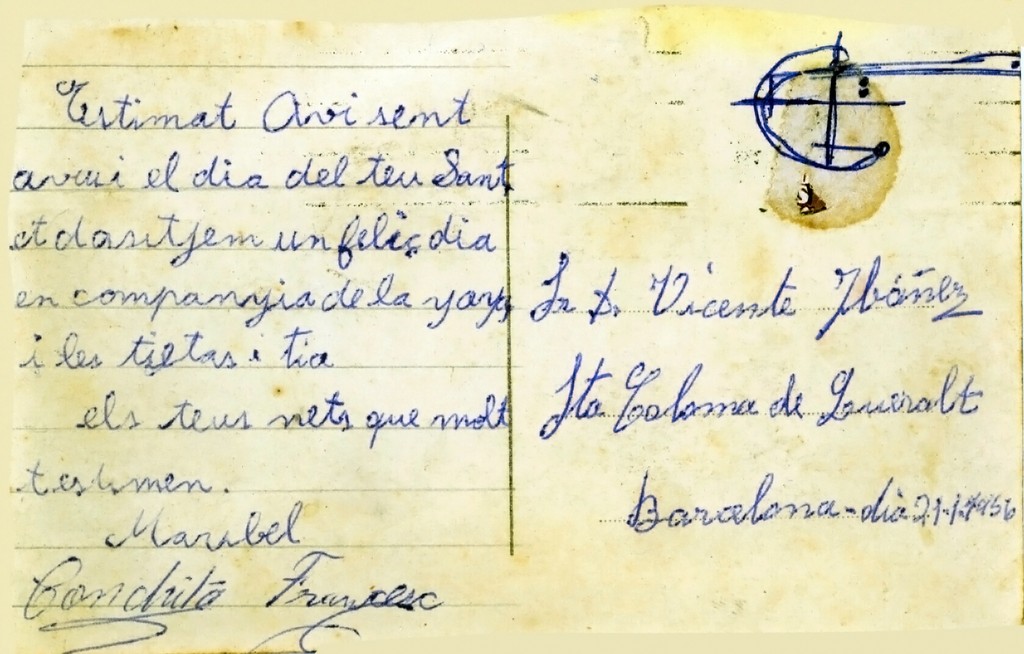 Estimat Avi sent
avui el dia del teu Sant
et dasitjem un feliç dia
en companyia de la yaya
i les tietas i tia
els teus nets que molt
testimen.
Maribel
Conchita Francesc
Sr D. Vicente Ibáñez
Sta Coloma de Queralt
Barcelona - dia 21-1-1956